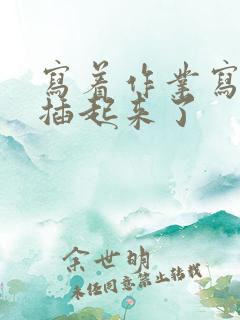 寫着作業寫
插起来了
余世明
未经同意禁止转载